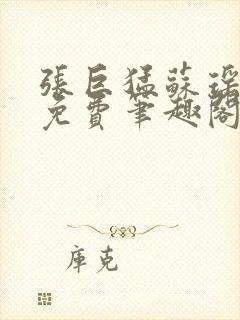 張巨猛蘇瑤
免費筆趣閣
庫克